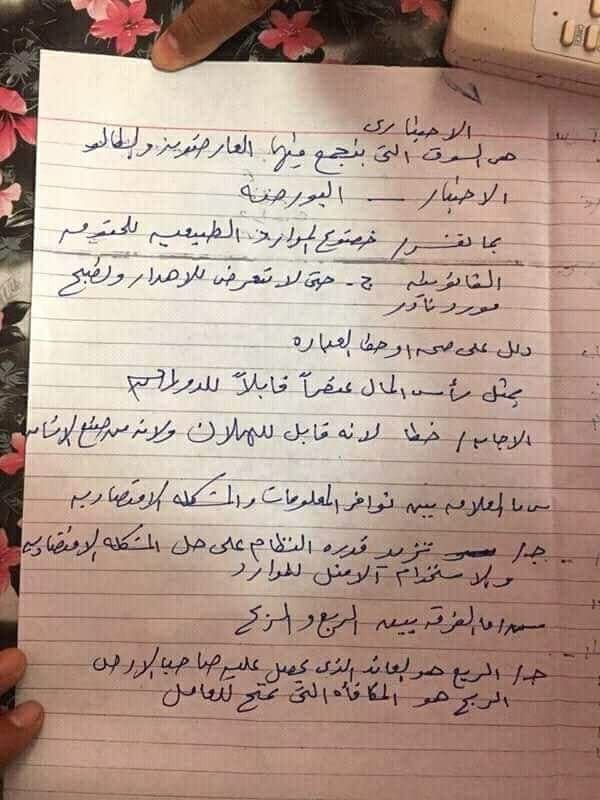 الاختيارى
هى السوق التى يتجمع فيها العارضون والطالبو
الاختيار — البورصة
بما تفسر / خضوع الموارد الطبيعيه للحقوق
القانونيه ج - حتى لا تتعرض للاهدار وتصبح
مورد نادر
دلل على صحه او خطا العباره
يمثل رأس المال عنصراً قابلاً للدوام
الاجابه / خطا لانه قابل للهلاك ولانه من صنع الانسان
س ما العلاقه بين توافر المعلومات والمشكله الاقتصاديه
جـ / تزيد قدره النظام على حل المشكله الاقتصاديه
والاستخدام الامثل للموارد
س ما الفرق بين الريع والربح
جـ / الريع هو العائد الذى يحصل عليه صاحب الارض
الربح هو المكافأه التى تمنح للعامل